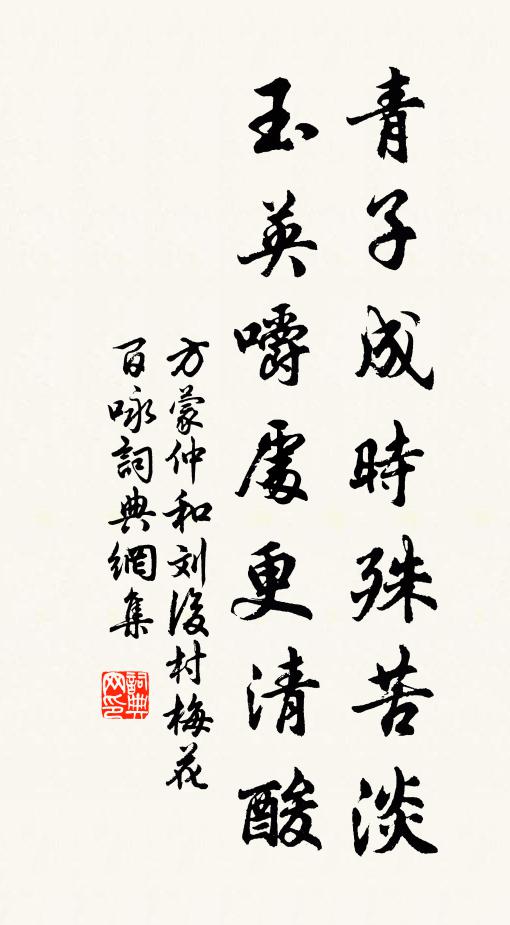 青子成時殊苦淡
玉英嚼處更清酸
方蒙仲和刘後村梅花
百咏詞典網集
詞典网印